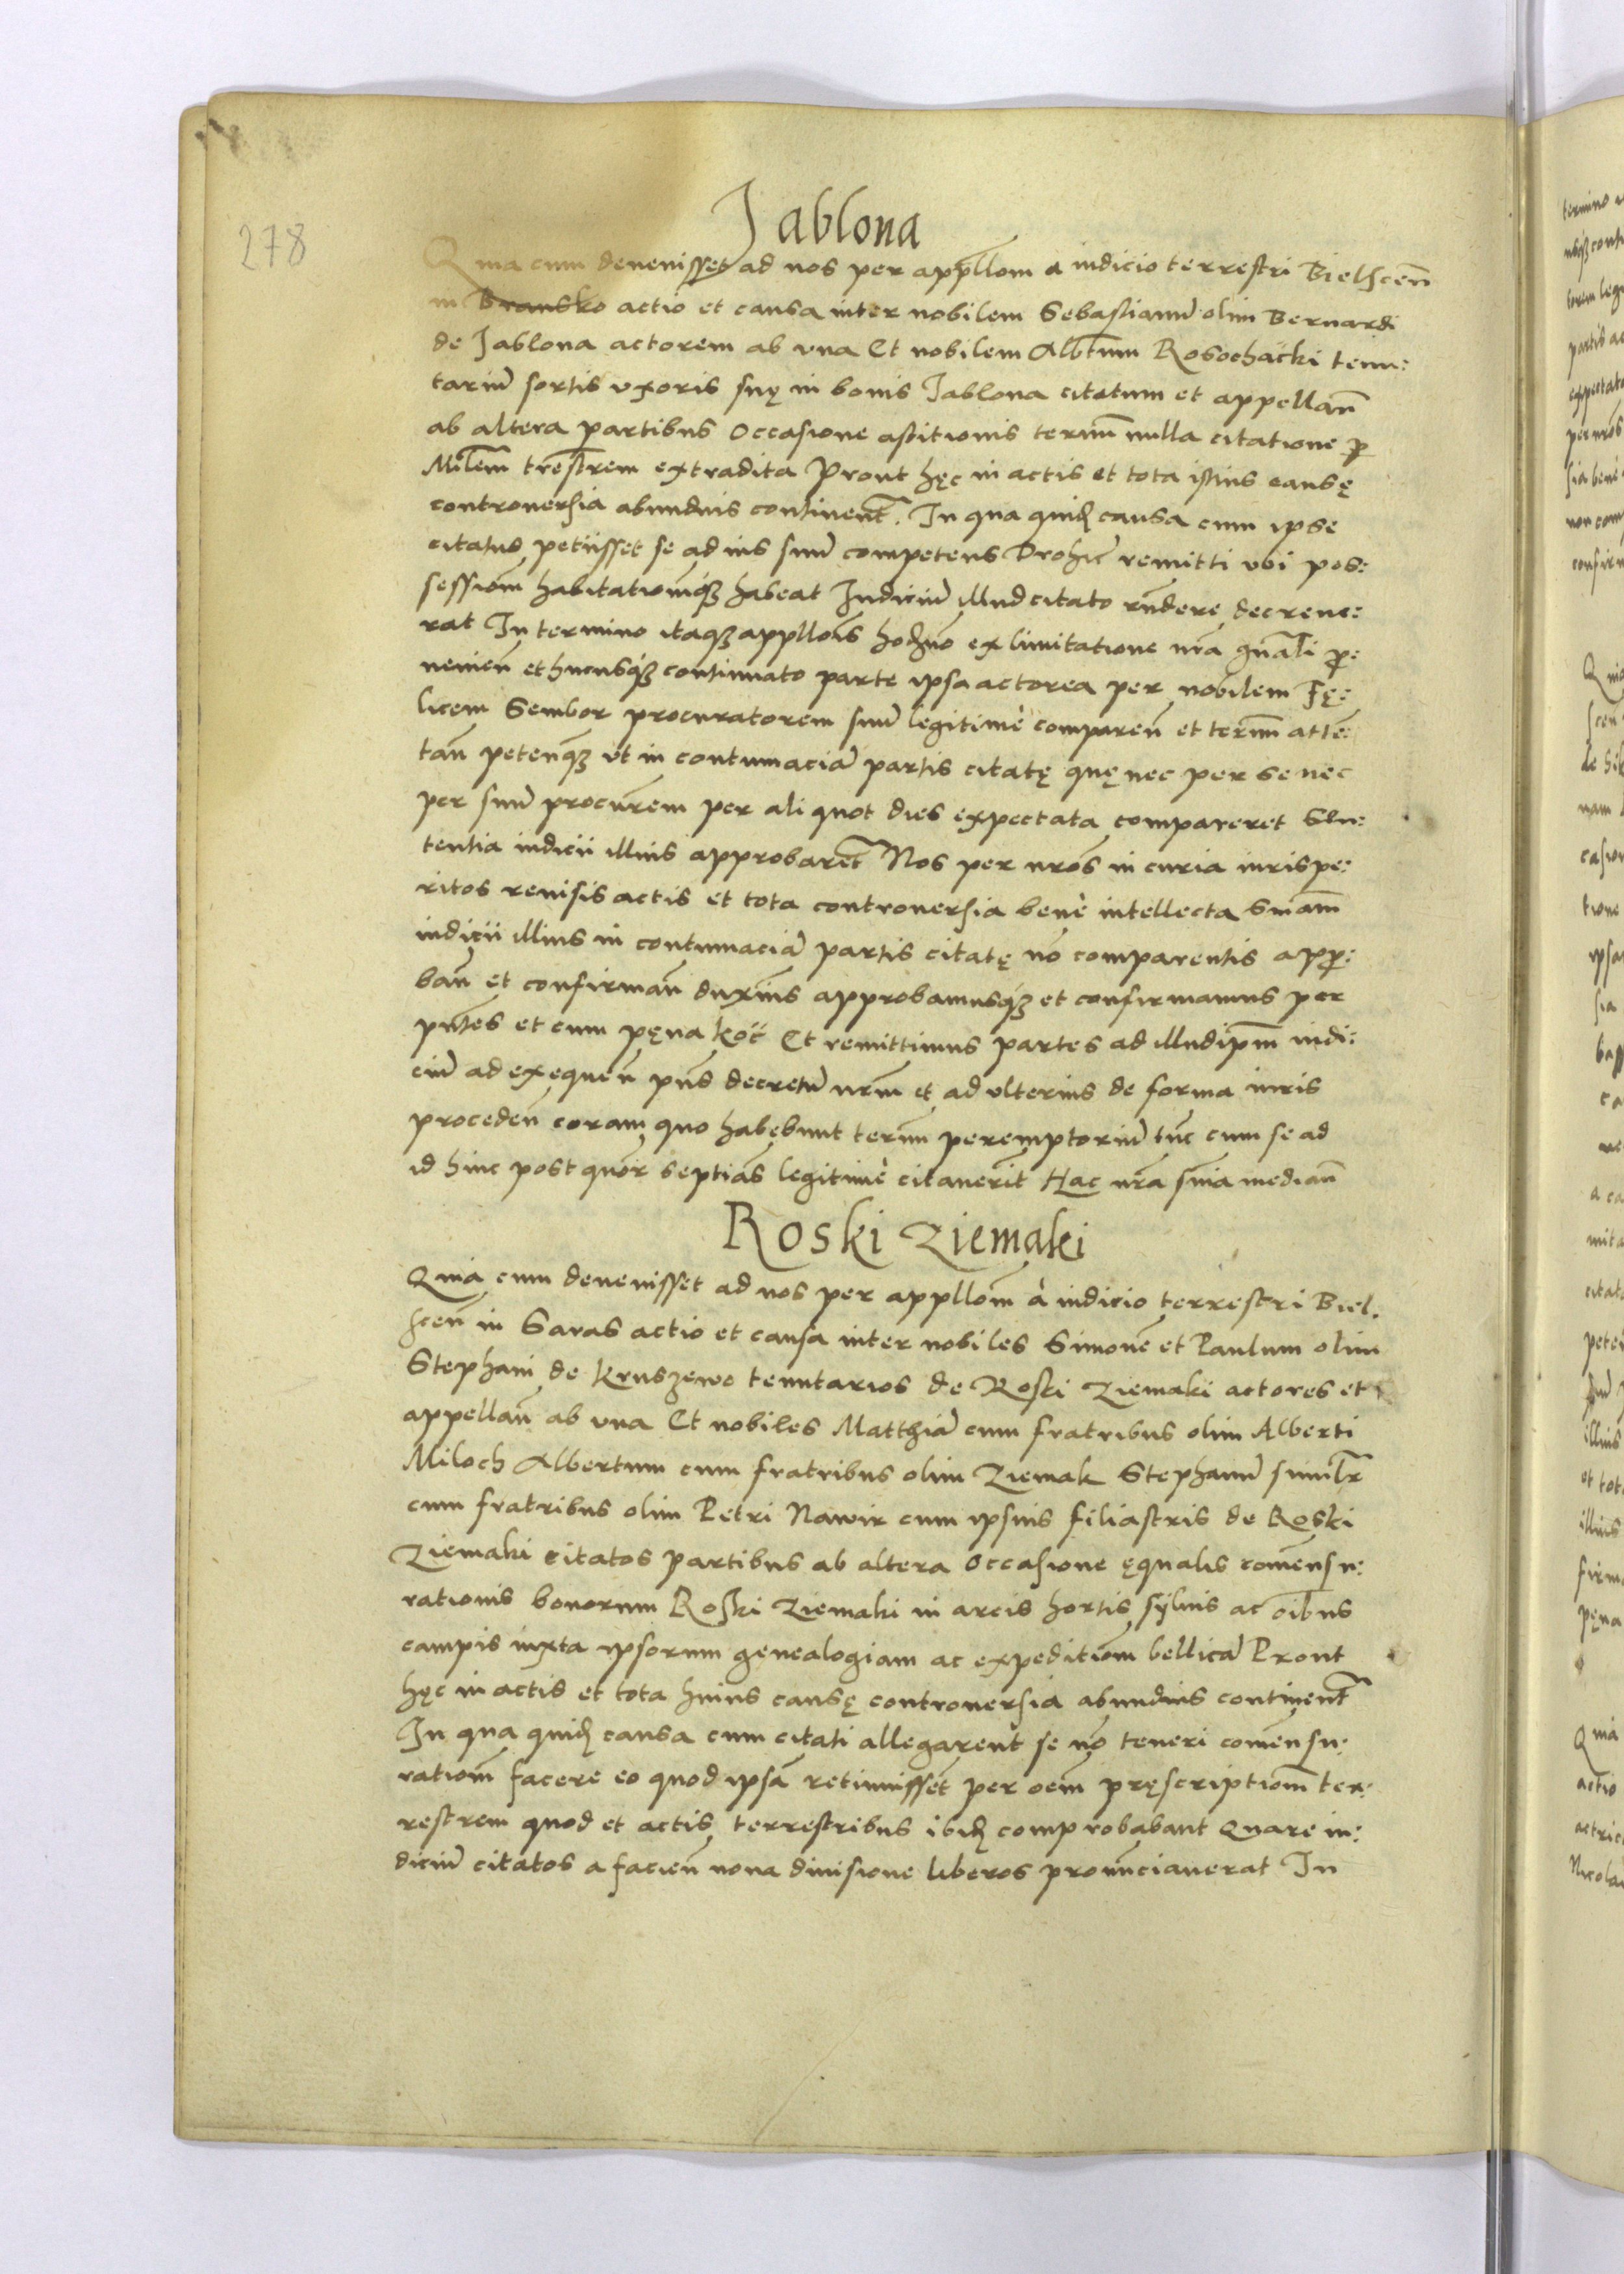 278
Jablona
Quia cum devenisset ad nos per appllom a iudicio terrestri Bielscen̄
in Bransko actio et causa inter nobilem Sebastianū olim Bernardi
de Jablona actorem ab una Et nobilem Albtum Rosochacki tenu:
tariū sortis uxoris suę in bonis Jablona citatum et appellan̄
ab altera partibus Occasione astitionis termī nulla citatione p̄
Milem̄ trēstrem extradita Prout hęc in actis et tota istius causę
controversia abundius continent̄. In qua quid̄ causa cum ipse
citatus petiisset se ad ius suū competens Drohic̄ remitti ubi pos:
sessiom̄ habitationēq3 habeat Iudiciū illud citato rn̄dere decreve:
rat In termino itaq3 appllōis hodr̄no ex limitatione nr̄a gn̄ali p̄:
venien̄ et hucusq3 continuato parte ipsa actorea per nobilem Fę:
licem Sembor procuratorem suū legitimè comparen̄ et term̄ atte:
tan̄ petenq3 ut in contumaciā partis citatę quę nec per se nec
per suū procūrem per aliquot dies expectata compareret Sen:
tentia iudicii illius approbaret̄ Nos per nros̄ in curia iurispe:
ritos revisis actis et tota controversia benè intellecta Sniam̄
iudicii illius in contumaciā partis citatę nō comparentis app̄:
ban̄ et confirman̄ duxim̄s approbamusq3 et confirmamus per
pn̄tes et cum pęna koc̄ Et remittimus partes ad illud ipm̄ iudi:
ciū ad exequen̄ pn̄s decretū nrm̄ et ad ulterius de forma iuris
proceden̄ coram quo habebunt term̄ peremptoriū tūc cum se ad
id hinc post quor̄ septias̄ legitimè citaverit̄ Hac nr̄a sn̄ia median̄
Roski Ziemaki
Quia cum devenisset ad nos per appllom̄ à iudicio terrestri Biel.
scen̄ in Saras actio et causa inter nobiles Simonē et Paulum olim
Stephani de Kruszewo tenutarios de Roski Ziemaki actores et
appellan̄ ab una Et nobiles Matthiā cum fratribus olim Alberti
Miloch Albertum cum fratribus olim Ziemak Stephanū similr̄
cum fratribus olim Petri Nawir cum ipsius filiastris de Roski
Ziemaki citatos partibus ab altera Occasione ęqualis comēnsu:
rationis bonorum Roski Ziemaki in areis hortis sylvis ac oib̄us
campis iuxta ipsorum genealogiam ac expeditiom̄ bellicā Prout
hęc in actis et tota huius causę controversia abundius continent̄
In qua quid̄ causa cum citati allegarent se nō teneri comēnsu:
rationm̄ facere eo quod ipsā retinuissēt per oem̄ pręscriptiom̄ ter:
restrem quod et actis terrestribus ibid̄ comprobabant Quare iu:
diciū citatos a facien̄ nova divisione liberos pronūnciaverat In